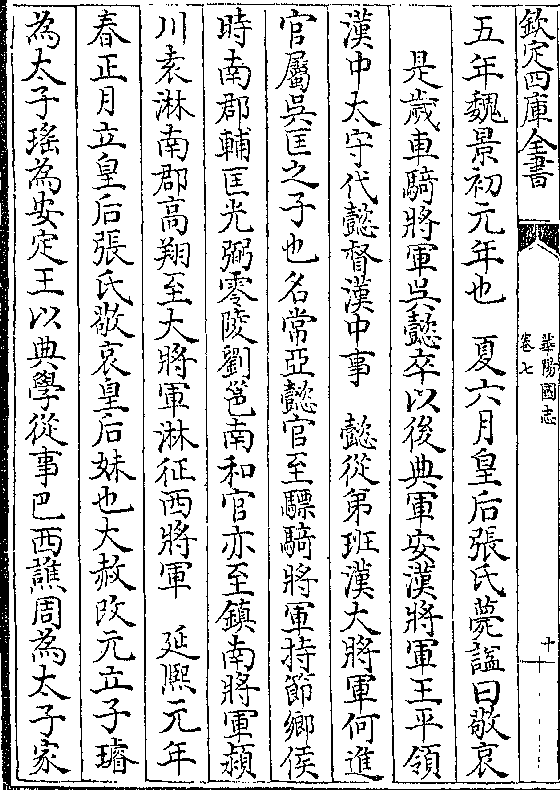 欽定四庫全書
華陽國志
卷七
十
五年魏景初元年也　夏六月皇后張氏薨諡曰敬哀
是歲車騎將軍吳懿卒以後典軍安漢將軍王平領
漢中太守代懿督漢中事　懿從第班漢大將軍何進
官屬吳匡之子也名常亞懿官至驃騎將軍持節鄉侯
時南郡輔匡光弼零陵劉邕南和官亦至鎮南將軍潁
川袁淋南郡高翔至大將軍淋征西將軍　延熙元年
春正月立皇后張氏敬哀皇后妹也大赦改元立子璿
為太子瑤為安定王以典學從事巴西譙周為太子家